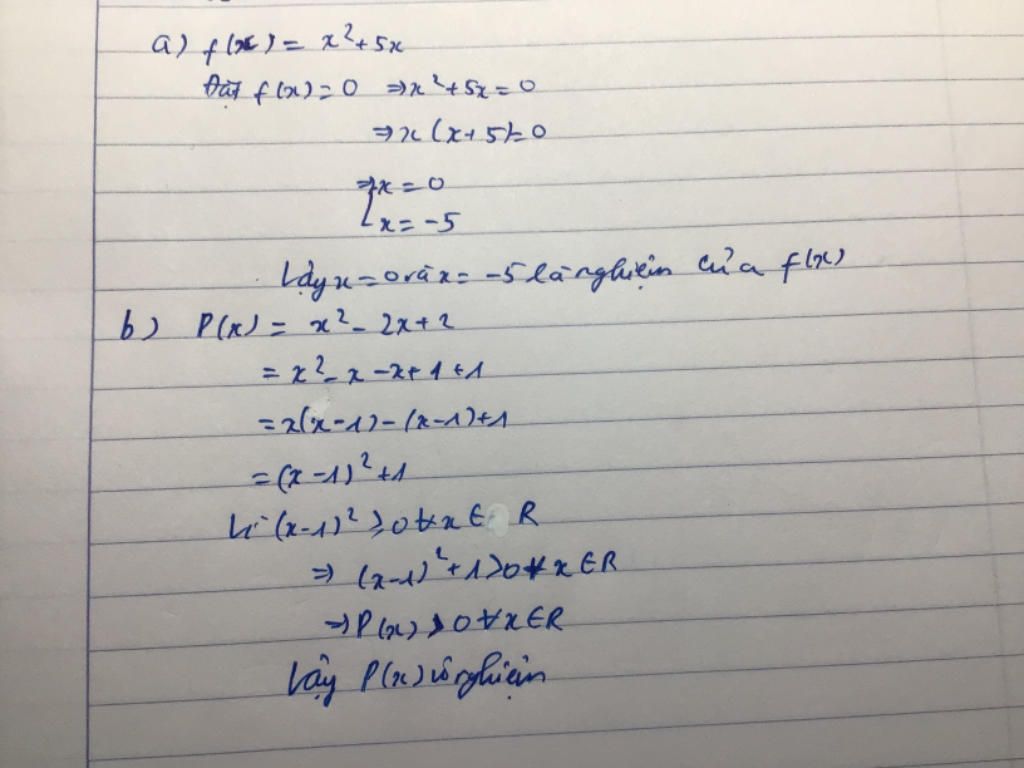 a) f(x) = x² + 5x
Đặt f(x) = 0 ⇒ x² + 5x = 0
⇒ x (x + 5) = 0
⇒ [x = 0
[x = -5
Vậy x = 0 và x = -5 là nghiệm của f(x)
b) P(x) = x² - 2x + 2
= x² - x - x + 1 + 1
= x(x - 1) - (x - 1) + 1
= (x - 1)² + 1
Vì (x - 1)² ≥ 0 ∀x ∈ R
⇒ (x - 1)² + 1 > 0 ∀x ∈ R
⇒ P(x) > 0 ∀x ∈ R
Vậy P(x) vô nghiệm